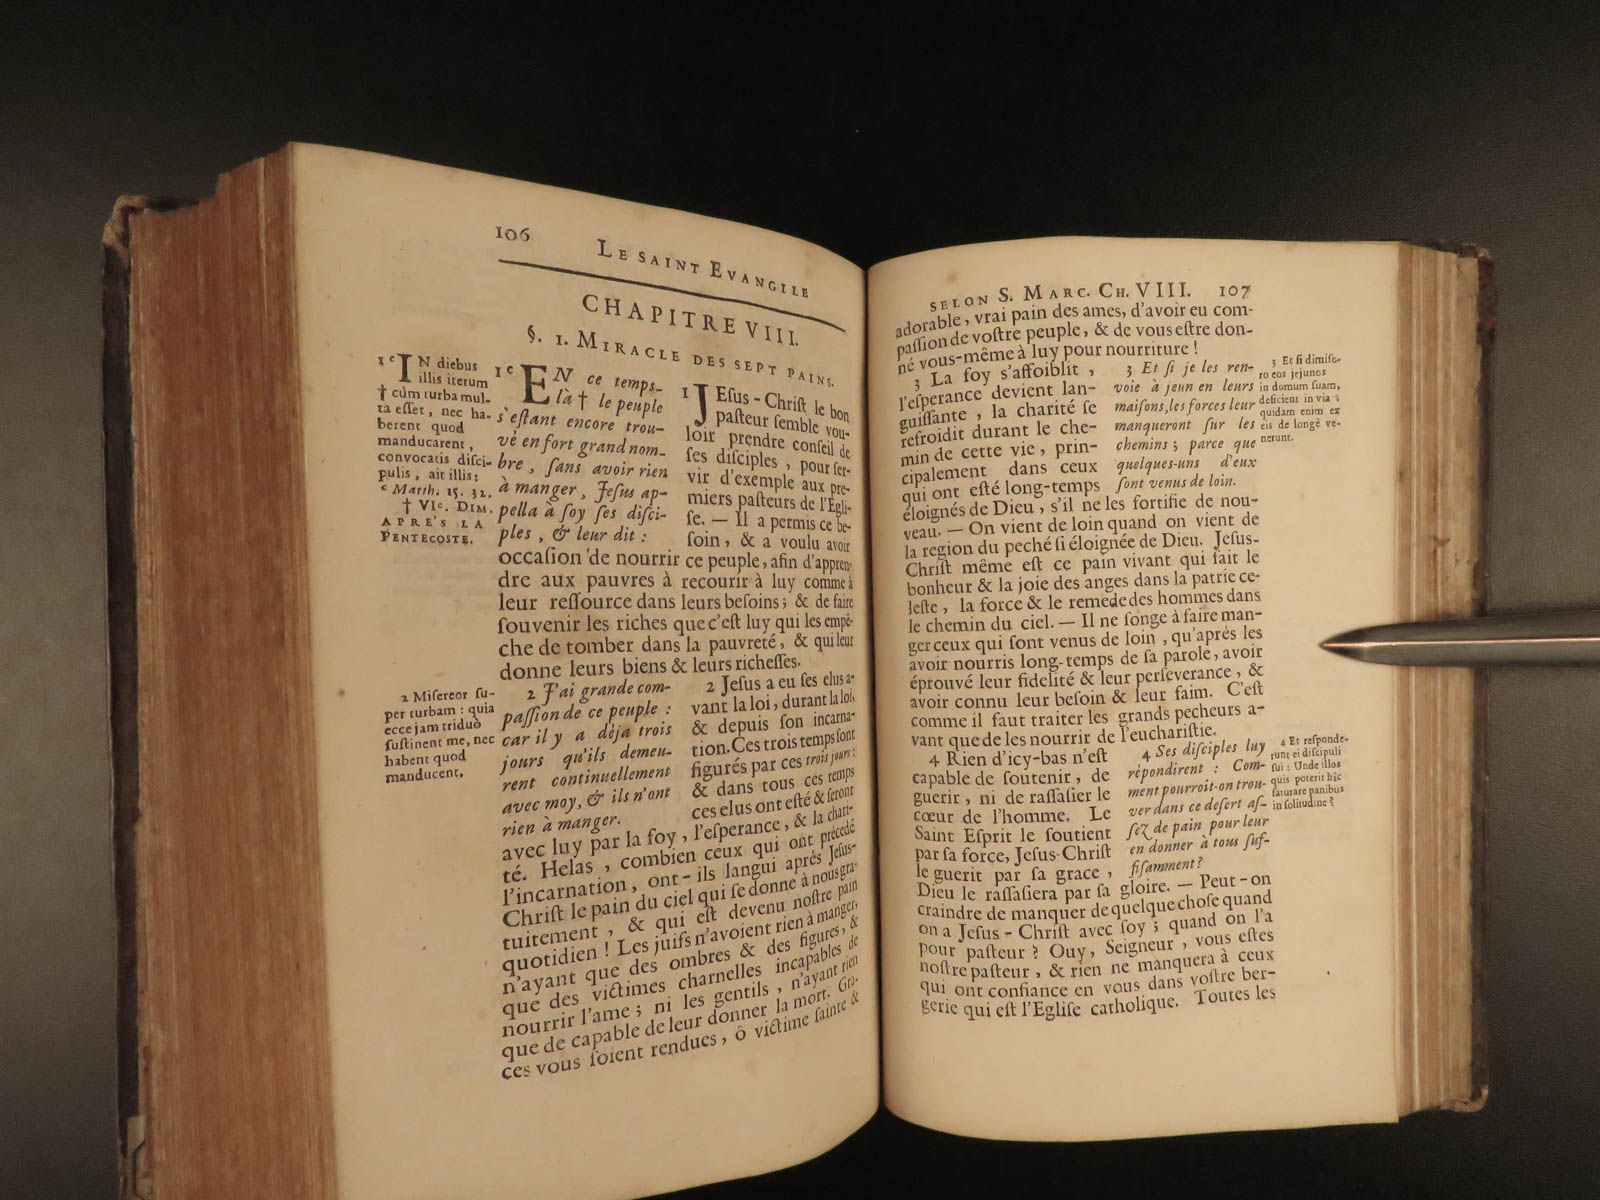 106
LE SAINT EVANGILE
CHAPITRE VIII.
§. 1. MIRACLE DES SEPT PAINS.
1 c IN diebus
illis iterum
† cùm turba mul-
ta esset, nec ha-
berent quod
manducarent,
convocatis disci-
pulis, ait illis:
c Matth. 15. 32.
† VIe. DIM.
APRE'S LA
PENTECOSTE.
1 c EN ce temps-
là † le peuple
s'eſtant encore trou-
vé en fort grand nom-
bre, ſans avoir rien
à manger, Jeſus ap-
pella à ſoy ſes diſci-
ples, & leur dit :
1 JEſus-Chriſt le bon
paſteur ſemble vou-
loir prendre conſeil de
ſes diſciples, pour ſer-
vir d'exemple aux pre-
miers paſteurs de l'Egli-
ſe. — Il a permis ce be-
ſoin, & a voulu avoir
occaſion de nourrir ce peuple, afin d'appren-
dre aux pauvres à recourir à luy comme à
leur reſſource dans leurs beſoins; & de faire
ſouvenir les riches que c'eſt luy qui les empê-
che de tomber dans la pauvreté, & qui leur
donne leurs biens & leurs richeſſes.
2 Miſereor ſu-
per turbam : quia
ecce jam triduò
ſuſtinent me, nec
habent quod
manducent.
2 J'ai grande com-
paſſion de ce peuple :
car il y a déja trois
jours qu'ils demeu-
rent continuellement
avec moy, & ils n'ont
rien à manger.
2 Jeſus a eu ſes elus a-
vant la loi, durant la loi,
& depuis ſon incarna-
tion. Ces trois temps ſont
figurés par ces trois jours :
& dans tous ces temps
ces elus ont eſté & ſeront
avec luy par la foy, l'eſperance, & la chari-
té. Helas, combien ceux qui ont précedé
l'incarnation, ont-ils langui après Jeſus-
Chriſt le pain du ciel qui ſe donne à nous gra-
tuitement, & qui eſt devenu noſtre pain
quotidien ! Les juifs n'avoient rien à manger,
n'ayant que des ombres & des figures, &
que des victimes charnelles incapables de
nourrir l'ame; ni les gentils, n'ayant rien
que de capable de leur donner la mort. Gra-
ces vous ſoient rendues, ô victime ſainte &
SELON S. MARC. CH. VIII. 107
adorable, vrai pain des ames, d'avoir eu com-
paſſion de voſtre peuple, & de vous eſtre don-
né vous-même à luy pour nourriture !
3 La foy s'affoiblit,
l'eſperance devient lan-
guiſſante, la charité ſe
refroidit durant le che-
min de cette vie, prin-
cipalement dans ceux
qui ont eſté long-temps
3 Et ſi je les ren-
voie à jeun en leurs
maiſons, les forces leur
manqueront ſur les
chemins ; parce que
quelques-uns d'eux
ſont venus de loin.
3 Et ſi dimiſe-
ro eos jejunos
in domum ſuam,
deficient in via :
quidam enim ex
eis de longè ve-
nerunt.
éloignés de Dieu, s'il ne les fortifie de nou-
veau. — On vient de loin quand on vient de
la region du peché ſi éloignée de Dieu. Jeſus-
Chriſt même eſt ce pain vivant qui fait le
bonheur & la joie des anges dans la patrie ce-
leſte, la force & le remede des hommes dans
le chemin du ciel. — Il ne ſonge à faire man-
ger ceux qui ſont venus de loin, qu'après les
avoir nourris long-temps de ſa parole, avoir
éprouvé leur fidelité & leur perſeverance, &
avoir connu leur beſoin & leur faim. C'eſt
comme il faut traiter les grands pecheurs a-
vant que de les nourrir de l'euchariſtie.
4 Rien d'icy-bas n'eſt
capable de ſoutenir, de
guerir, ni de raſſaſier le
cœur de l'homme. Le
Saint Eſprit le ſoutient
par ſa force, Jeſus-Chriſt
le guerit par ſa grace,
4 Ses diſciples luy
répondirent : Com-
ment pourroit-on trou-
ver dans ce deſert aſ-
ſez de pain pour leur
en donner à tous ſuf-
fiſamment ?
4 Et reſponde-
runt ei diſcipuli
ſui : Unde illos
quis poterit hîc
ſaturare panibus
in ſolitudine ?
Dieu le raſſaſiera par ſa gloire. — Peut-on
craindre de manquer de quelque choſe quand
on a Jeſus-Chriſt avec ſoy ; quand on l'a
pour paſteur ? Ouy, Seigneur, vous eſtes
noſtre paſteur, & rien ne manquera à ceux
qui ont confiance en vous dans voſtre ber-
gerie qui eſt l'Egliſe catholique. Toutes les